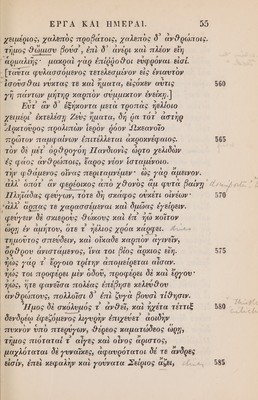 ΕΡΓΑ ΚΑΙ ΗΜΕΡΑΙ. 55
χειμέριος, χαλεπὸς προβάτοις, χαλεπὸς δ᾽ ἀνθρώποις.
τῆμος θὤμισυ βουσ᾽, ἐπὶ δ᾽ ἀνέρι καὶ πλέον εἴη
ἁρμαλιῆς· μακραὶ γὰρ ἐπίρροθοι εὐφρόναι εἰσί.
[ταῦτα φυλασσόμενος τετελεσμένον εἰς ἐνιαυτὸν
ἰσοῦσθαι νύκτας τε καὶ ἤματα, εἰσόκεν αὖτις 560
γῆ πάντων μήτηρ καρπὸν σύμμικτον ἐνείκῃ.]
Εὖτ᾽ ἂν δ᾽ ἑξήκοντα μετὰ τροπὰς ἠελίοιο
χειμέρι᾽ ἐκτελέσῃ Ζεὺς ἤματα, δή ῥα τότ᾽ ἀστὴρ
Ἀρκτοῦρος προλιπὼν ἱερὸν ῥόον Ὠκεανοῖο
πρῶτον παμφαίνων ἐπιτέλλεται ἀκροκνέφαιος. 565
τὸν δὲ μέτ᾽ ὀρθρογόη Πανδιονὶς ὦρτο χελιδὼν
ἐς φάος ἀνθρώποις, ἔαρος νέον ἱσταμένοιο.
τὴν φθάμενος οἴνας περιταμνέμεν· ὣς γὰρ ἄμεινον.
ἀλλ᾽ ὁπότ᾽ ἂν φερέοικος ἀπὸ χθονὸς ἂμ φυτὰ βαίνῃ 570
Πληϊάδας φεύγων, τότε δὴ σκάφος οὐκέτι οἰνέων·
ἀλλ᾽ ἅρπας τε χαρασσέμεναι καὶ δμῶας ἐγείρειν.
φεύγειν δὲ σκιεροὺς θώκους καὶ ἐπ᾽ ἠῶ κοῖτον
ὥρῃ ἐν ἀμήτου, ὅτε τ᾽ ἠέλιος χρόα κάρφει.
τημοῦτος σπεύδειν, καὶ οἴκαδε καρπὸν ἀγινεῖν,
ὄρθρου ἀνιστάμενος, ἵνα τοι βίος ἄρκιος εἴη. 575
ἠὼς γάρ τ᾽ ἔργοιο τρίτην ἀπομείρεται αἶσαν.
ἠώς τοι προφέρει μὲν ὁδοῦ, προφέρει δὲ καὶ ἔργου·
ἠώς, ἥτε φανεῖσα πολέας ἐπέβησε κελεύθου
ἀνθρώπους, πολλοῖσι δ᾽ ἐπὶ ζυγὰ βουσὶ τίθησιν.
Ἦμος δὲ σκόλυμός τ᾽ ἀνθεῖ, καὶ ἠχέτα τέττιξ 580
δενδρέῳ ἐφεζόμενος λιγυρὴν ἐπιχεύετ᾽ ἀοιδὴν
πυκνὸν ὑπὸ πτερύγων, θέρεος καματώδεος ὥρῃ,
τῆμος πιόταταί τ᾽ αἶγες καὶ οἶνος ἄριστος,
μαχλόταται δὲ γυναῖκες, ἀφαυρότατοι δέ τε ἄνδρες
εἰσίν, ἐπεὶ κεφαλὴν καὶ γούνατα Σείριος ἄζει, 585